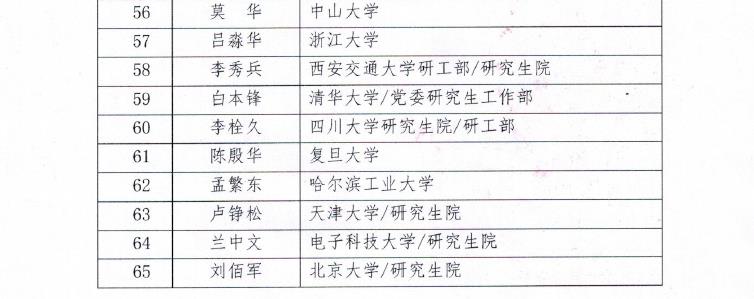 56 莫 华 中山大学
57 吕淼华 浙江大学
58 李秀兵 西安交通大学研工部/研究生院
59 白本锋 清华大学/党委研究生工作部
60 李栓久 四川大学研究生院/研工部
61 陈殷华 复旦大学
62 孟繁东 哈尔滨工业大学
63 卢铮松 天津大学/研究生院
64 兰中文 电子科技大学/研究生院
65 刘佰军 北京大学/研究生院